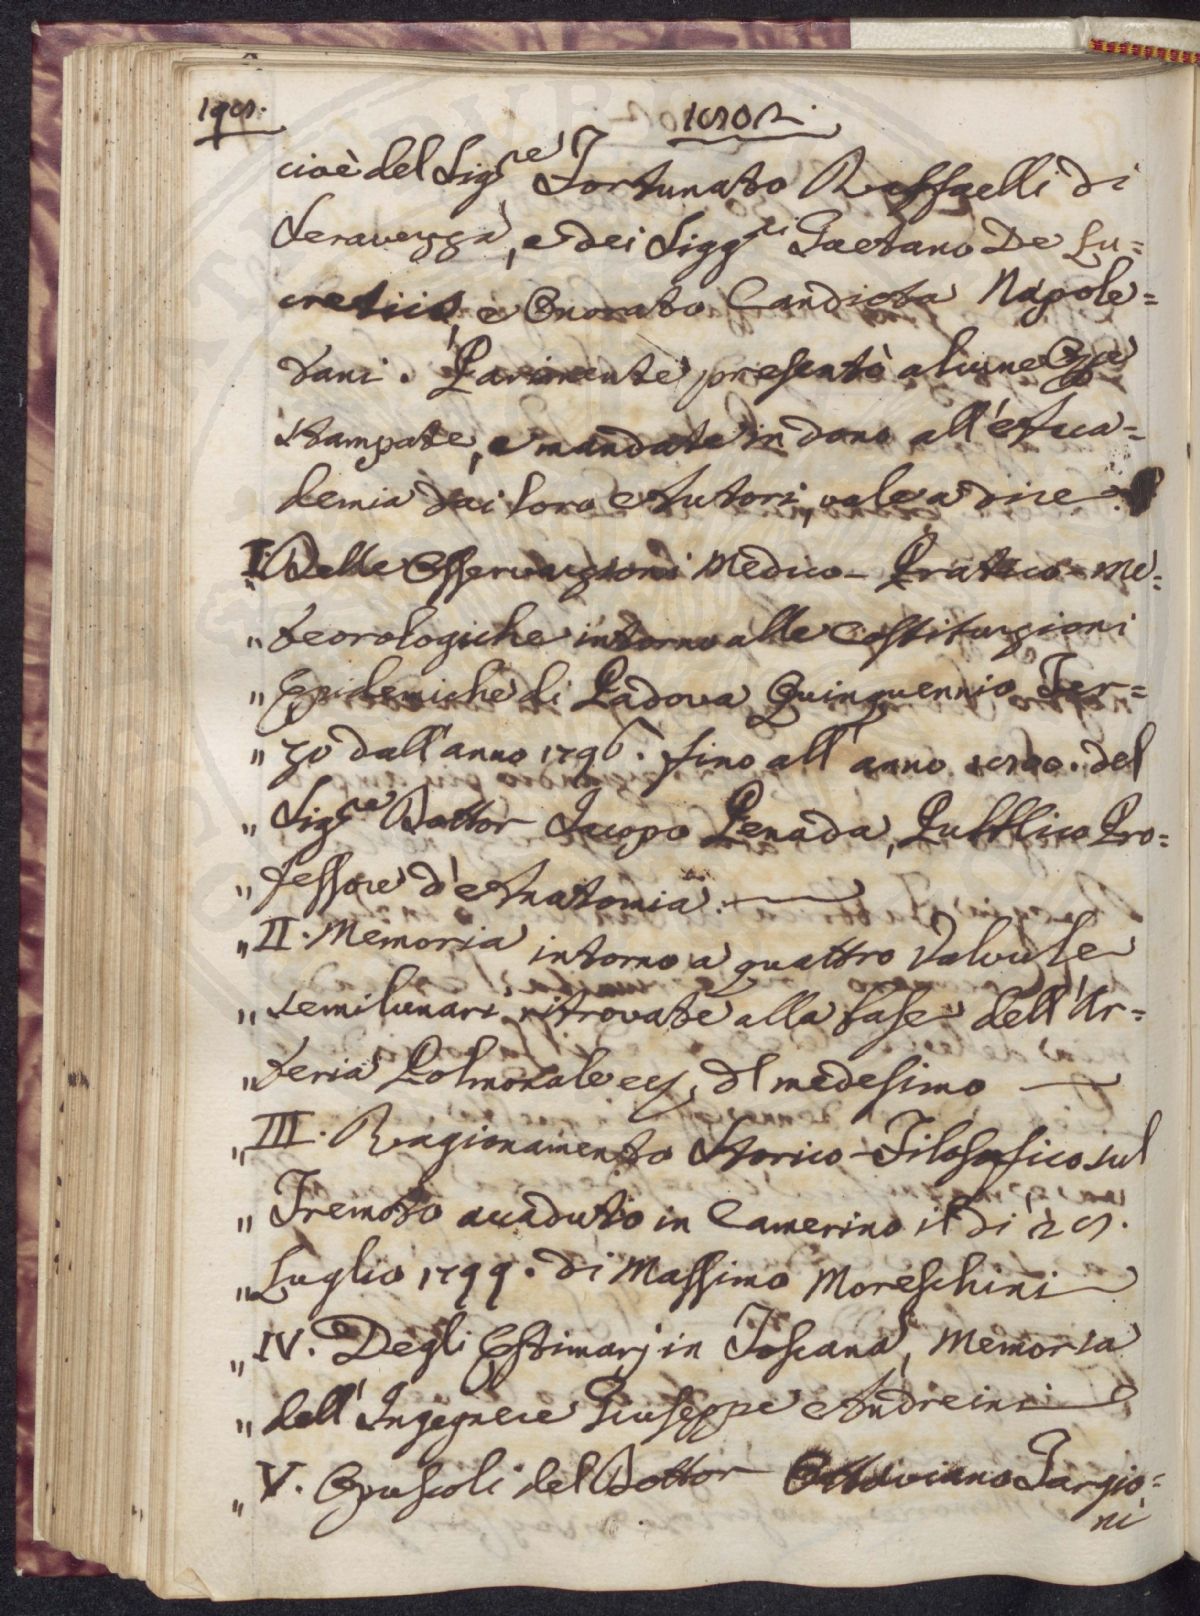 198. 1802.
cioè del Sig.re Fortunato Raffaelli di
Seravezza, e dei Sigg.ri Gaetano De Lu=
cretiis, e Onorato Candiota Napole=
tani. Parimente presentò alcune Op.re
stampate, e mandate in dono all'Acca=
demia dai loro Autori, vale a dire
I. Delle Osservazioni Medico-Pratico-Me=
" teorologiche intorno alle Costituzioni
" Epidemiche di Padova Quinquennio Ter=
" zo dall'anno 1796. fino all'anno 1800. del
" Sig.re Dottor Jacopo Penada, Pubblico Pro=
" fessore d'Anatomia.
" II. Memoria intorno a quattro Valvule
" semilunari ritrovate alla base dell'Ar=
" teria Polmonale ec, Del medesimo
" III. Ragionamento Storico-Filosofico sul
" Tremoto accaduto in Camerino il dì 28.
" Luglio 1799. di Massimo Moreschini
" IV. Degli Estimarj in Toscana, Memoria
" dell'Ingegnere Giuseppe Andreini
" V. Opuscoli del Dottor Ottaviano Targio=
ni